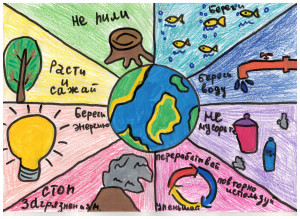 Не пили
Береги
Расти
и
сажай
Береги
воду
Береги
энергию
Не
мусорить
перерабатывай
повторно
используй
уменьшай
стоп
загрязнениям